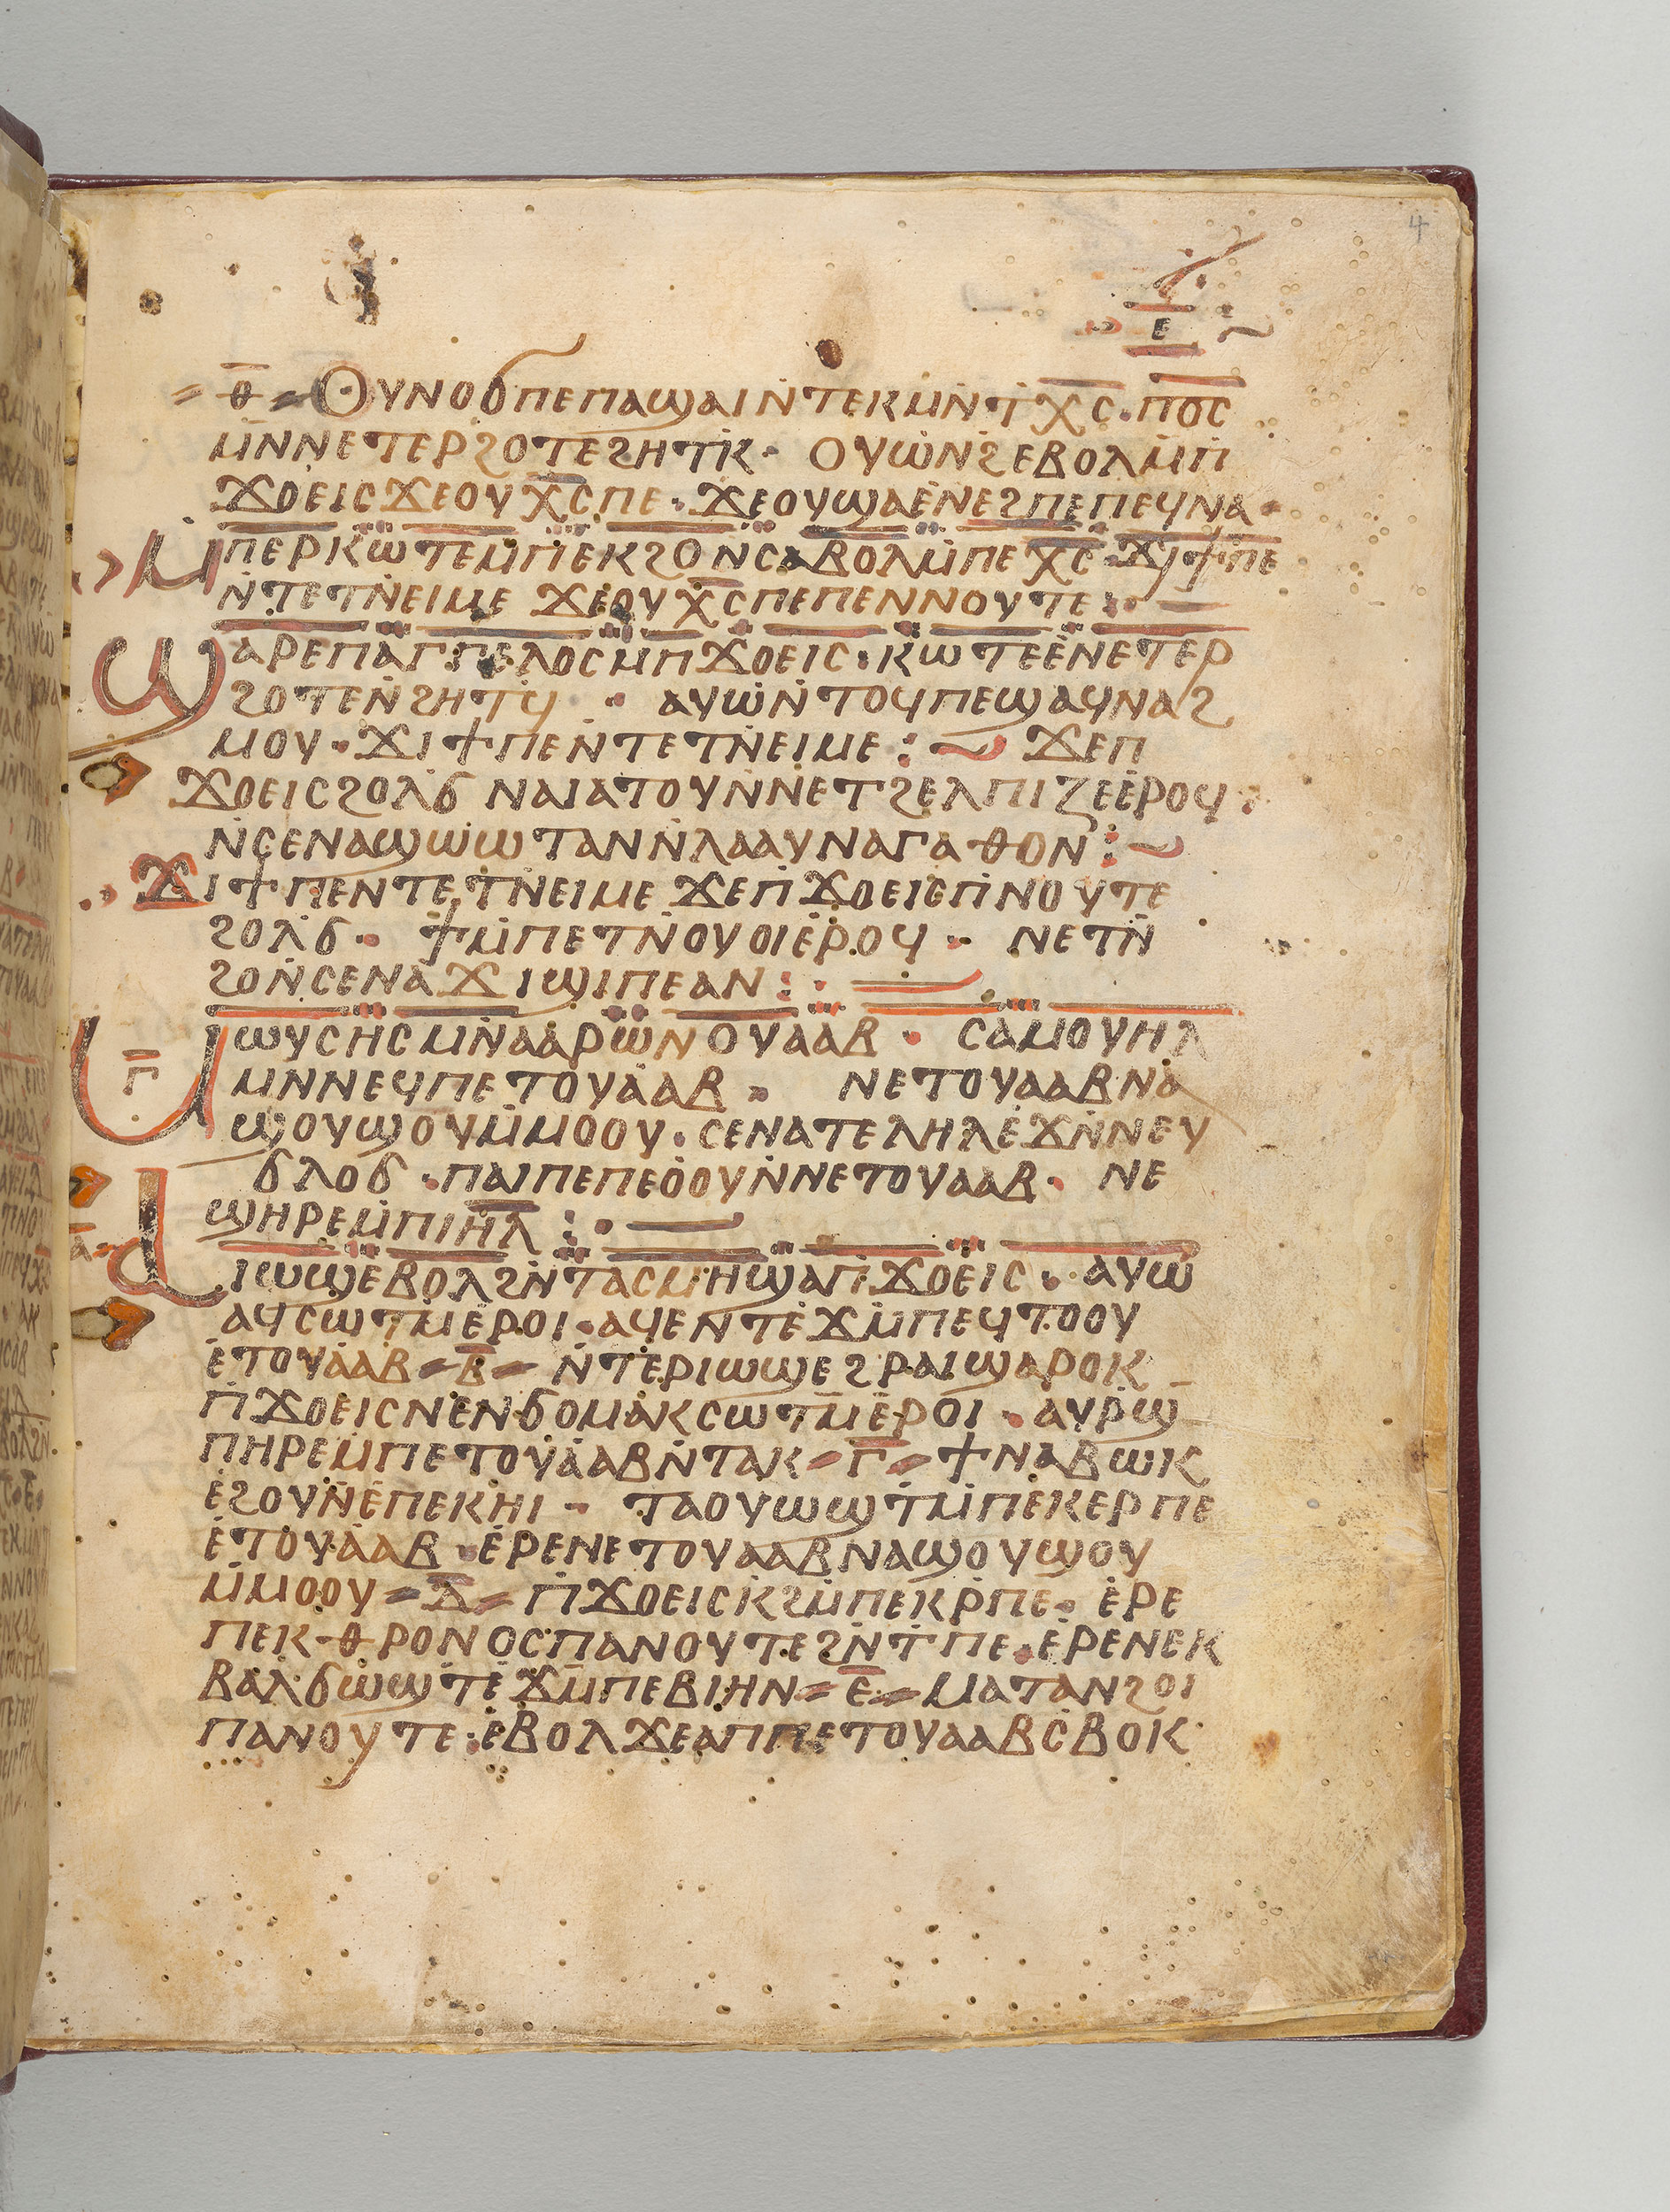 4
ⲉ
ⲑ ⲞⲨⲚⲞϬⲠⲈⲠⲀϢⲀⲒⲚⲦⲈⲔⲘⲚⲦⲬⲤ·ⲠⲞⲤ
ⲘⲚⲚⲈⲦⲈⲢϨⲞⲦⲈϨⲎⲦⲔ· ⲞⲨⲰⲚϨⲈⲂⲞⲖⲘⲠ
ϪⲞⲈⲒⲤϪⲈⲞⲨⲬⲤⲠⲈ·ϪⲈⲞⲨϢⲀⲈⲚⲈϨⲠⲈⲠⲈϤⲚⲀ
ⲘⲠⲈⲢⲔⲰⲦⲈⲘⲠⲈⲔϨⲞⲚⲤⲀⲂⲞⲖⲘⲠⲈⲬⲤ·ϪⲒϮⲠⲈ
ⲚⲦⲈⲦⲚⲈⲒⲘⲈ ϪⲈⲞⲨⲬⲤⲠⲈⲠⲈⲚⲚⲞⲨⲦⲈ
ϢⲀⲢⲈⲠⲀⲄⲄⲈⲖⲞⲤⲘⲠϪⲞⲈⲒⲤ·ⲔⲰⲦⲈⲈⲚⲈⲦⲈⲢ
ϨⲞⲦⲈⲚϨⲎⲦϤ · ⲀⲨⲰⲚⲦⲞϤⲠⲈϢⲀϤⲚⲀϨ
ⲘⲞⲨ·ϪⲒϮⲠⲈⲚⲦⲈⲦⲚⲈⲒⲘⲈ: ϪⲈⲠ
ϪⲞⲈⲒⲤϨⲞⲖϬ ⲚⲀⲒⲀⲦⲞⲨⲚⲚⲈⲦϨⲈⲖⲠⲒⲌⲈⲈⲢⲞϤ:
ⲚⲤⲈⲚⲀϢⲰⲰⲦⲀⲚⲚⲖⲀⲀⲨⲚⲀⲄⲀⲑⲞⲚ:
ϪⲒϮⲠⲈⲚⲦⲈⲦⲚⲈⲒⲘⲈ ϪⲈⲠϪⲞⲈⲒⲤⲠⲚⲞⲨⲦⲈ
ϨⲞⲖϬ· ϮⲘⲠⲈⲦⲚⲞⲨⲞⲒⲈⲢⲞϤ· ⲚⲈⲦⲚ
ϨⲞⲚⲤⲈⲚⲀϪⲒϢⲒⲠⲈⲀⲚ:
ⲅ ⲘⲰⲨⲤⲎⲤⲘⲚⲀⲀⲢⲰⲚⲞⲨⲀⲀⲂ· ⲤⲀⲘⲞⲨⲎⲖ
ⲘⲚⲚⲈϤⲠⲈⲦⲞⲨⲀⲀⲂ· ⲚⲈⲦⲞⲨⲀⲀⲂⲚⲀ
ϢⲞⲨϢⲞⲨⲘⲘⲞⲞⲨ·ⲤⲈⲚⲀⲦⲈⲖⲎⲖⲈϪⲚⲚⲈⲨ
ϬⲖⲞϬ·ⲠⲀⲒⲠⲈⲠⲈⲞⲞⲨⲚⲚⲈⲦⲞⲨⲀⲀⲂ· ⲚⲈ
ϢⲎⲢⲈⲘⲠⲒⲎⲖ:
ⲁ ⲀⲒⲰϢⲈⲂⲞⲖϨⲚⲦⲀⲤⲘⲎϢⲀⲠϪⲞⲈⲒⲤ· ⲀⲨⲰ
ⲀϤⲤⲰⲦⲘⲈⲢⲞⲒ·ⲀϤⲈⲚⲦⲈϪⲘⲠⲈϤⲦⲞⲞⲨ
ⲈⲦⲞⲨⲀⲀⲂ ⲃ ⲚⲦⲈⲢⲒⲰϢⲈϨⲢⲀⲒϢⲀⲢⲞⲔ
ⲠϪⲞⲈⲒⲤⲚⲈⲚϬⲞⲘⲀⲔⲤⲰⲦⲘⲈⲢⲞⲒ·ⲀⲨⲢϢ
ⲠⲎⲢⲈⲘⲠⲈⲦⲞⲨⲀⲀⲂⲚⲦⲀⲔ ⲅ ϮⲚⲀⲂⲰⲔ
ⲈϨⲞⲨⲚⲈⲠⲈⲔⲎⲒ· ⲦⲀⲞⲨⲰϢⲦⲘⲠⲈⲔⲈⲢⲠⲈ
ⲈⲦⲞⲨⲀⲀⲂ·ⲈⲢⲈⲚⲈⲦⲞⲨⲀⲀⲂⲚⲀϢⲞⲨϢⲞⲨ
ⲘⲘⲞⲞⲨ ⲇ ⲠϪⲞⲈⲒⲤⲔϨⲘⲠⲈⲔⲢⲠⲈ·ⲈⲢⲈ
ⲠⲈⲔⲑⲢⲞⲚⲞⲤⲠⲀⲚⲞⲨⲦⲈϨⲚⲦⲠⲈ·ⲈⲢⲈⲚⲈⲔ
ⲂⲀⲖϬⲰϢⲦⲈϪⲘⲠⲈⲂⲒⲎⲚ ⲉ ⲘⲀⲦⲀⲚϨⲞⲒ
ⲠⲀⲚⲞⲨⲦⲈ·ⲈⲂⲞⲖϪⲈⲀⲠⲠⲈⲦⲞⲨⲀⲀⲂⲤⲂⲞⲔ